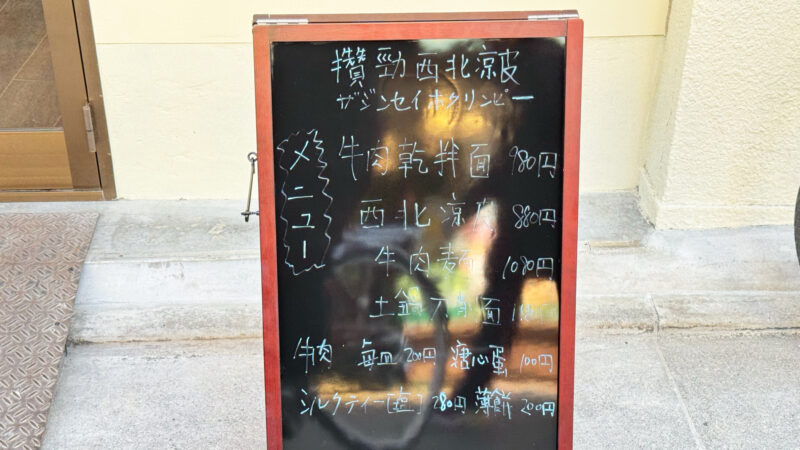 攢勁西北涼皮
ザジンセイホクリンピー
メニュー
牛肉乾拌面 980円
西北涼皮 880円
牛肉麺 1080円
土鍋刀削面
牛肉 每皿 200円 糖心蛋 100円
ミルクティー[塩] 280円 薄餅 200円